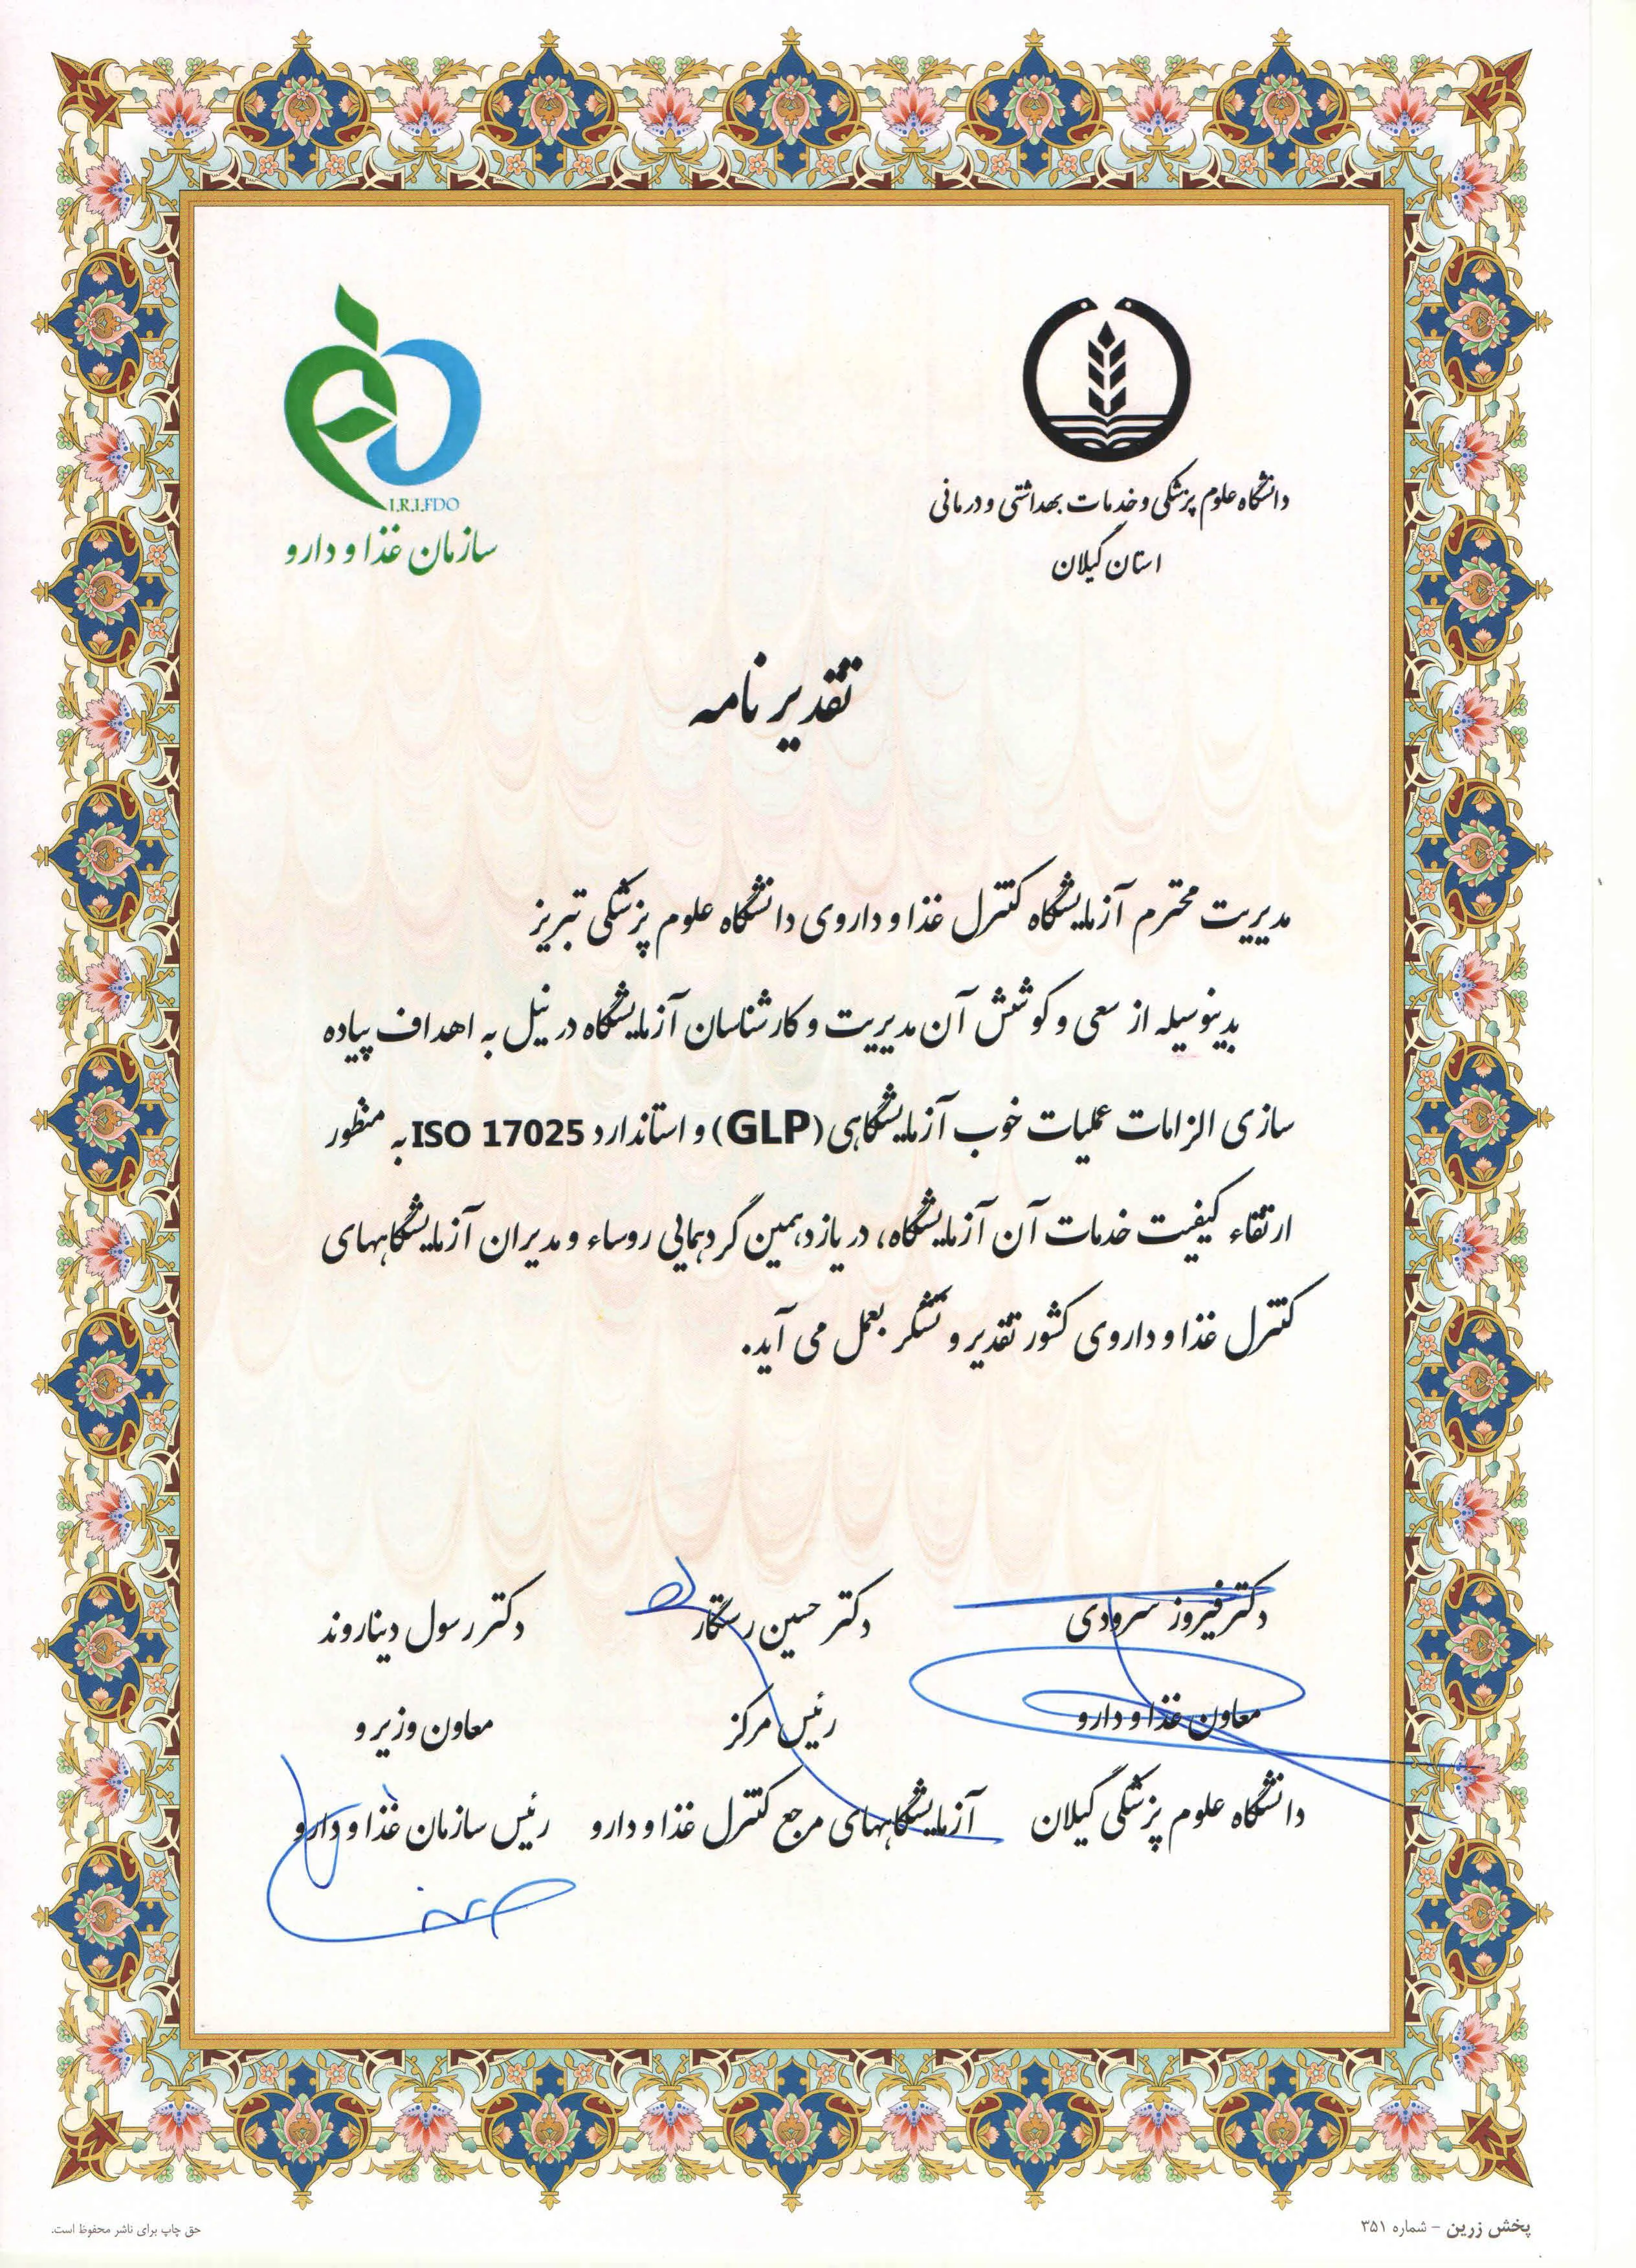 I.R.I.FDO
سازمان غذا و دارو
دانشگاه علوم پزشکی و خدمات بهداشتی و درمانی
استان گیلان
تقدیر نامه
مدیریت محترم آزمایشگاه کنترل غذا و داروی دانشگاه علوم پزشکی تبریز
بدینوسیله از سعی و کوشش آن مدیریت و کارشناسان آزمایشگاه در نیل به اهداف پیاده
سازی الزامات عملیات خوب آزمایشگاهی (GLP) و استاندارد ISO 17025 به منظور
ارتقاء کیفیت خدمات آن آزمایشگاه، در یازدهمین گردهمایی روساء و مدیران آزمایشگاههای
کنترل غذا و داروی کشور تقدیر و تشکر بعمل می آید.
دکتر فیروز سرودی
معاون غذا و دارو
دانشگاه علوم پزشکی گیلان
دکتر حسین رستگار
رئیس مرکز
آزمایشگاههای مرجع کنترل غذا و دارو
دکتر رسول دیناروند
معاون وزیر و
رئیس سازمان غذا و دارو
پخش زرین - شماره ۳۵۱
حق چاپ برای ناشر محفوظ است.